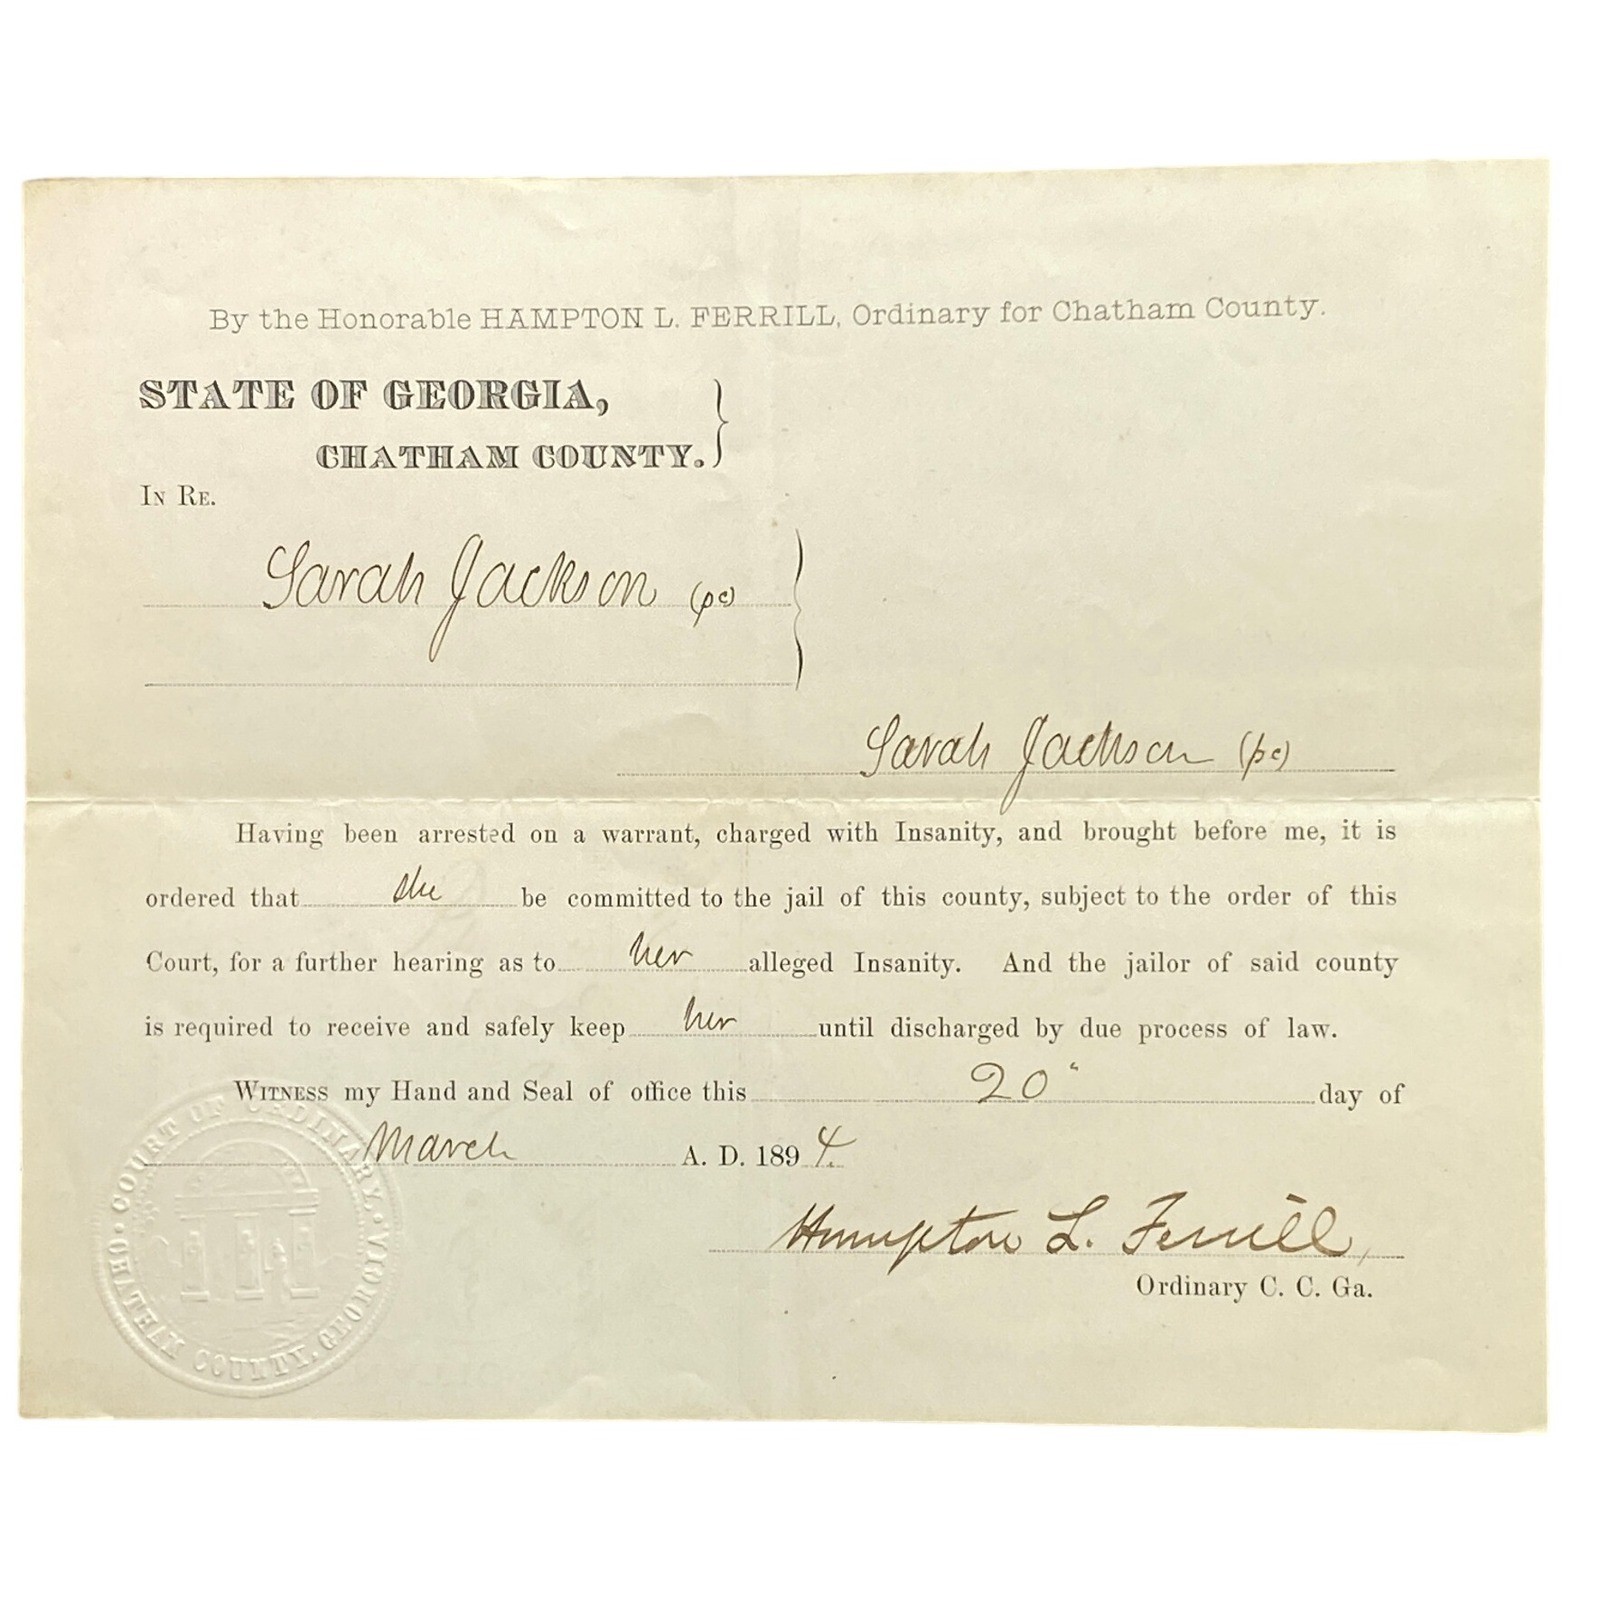 By the Honorable HAMPTON L. FERRILL, Ordinary for Chatham County.
STATE OF GEORGIA,
CHATHAM COUNTY.
IN RE.
Sarah Jackson (pc)
Sarah Jackson (pc)
Having been arrested on a warrant, charged with Insanity, and brought before me, it is
ordered that she be committed to the jail of this county, subject to the order of this
Court, for a further hearing as to her alleged Insanity. And the jailor of said county
is required to receive and safely keep her until discharged by due process of law.
WITNESS my Hand and Seal of office this 20" day of
March A. D. 1894.
Hampton L. Ferrill,
Ordinary C. C. Ga.
COURT OF ORDINARY. CHATHAM COUNTY, GEORGIA.